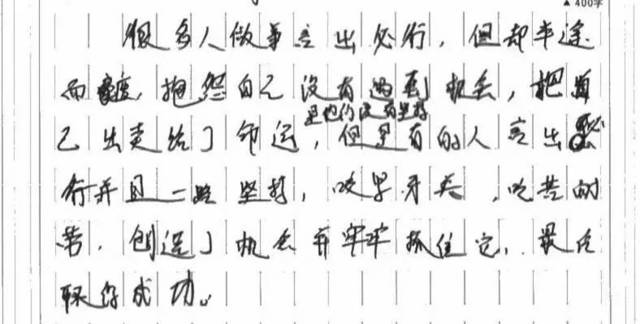 ▲400字
很多人做事言出必行，但却半途
而废，抱怨自己没有遇到机会，把自
是他们没有坚持
己出卖给了命运，但是有的人言出必
行并且一路坚持，咬紧牙关，吃苦耐
苦，创造了机会并牢牢抓住它，最后
取得成功。